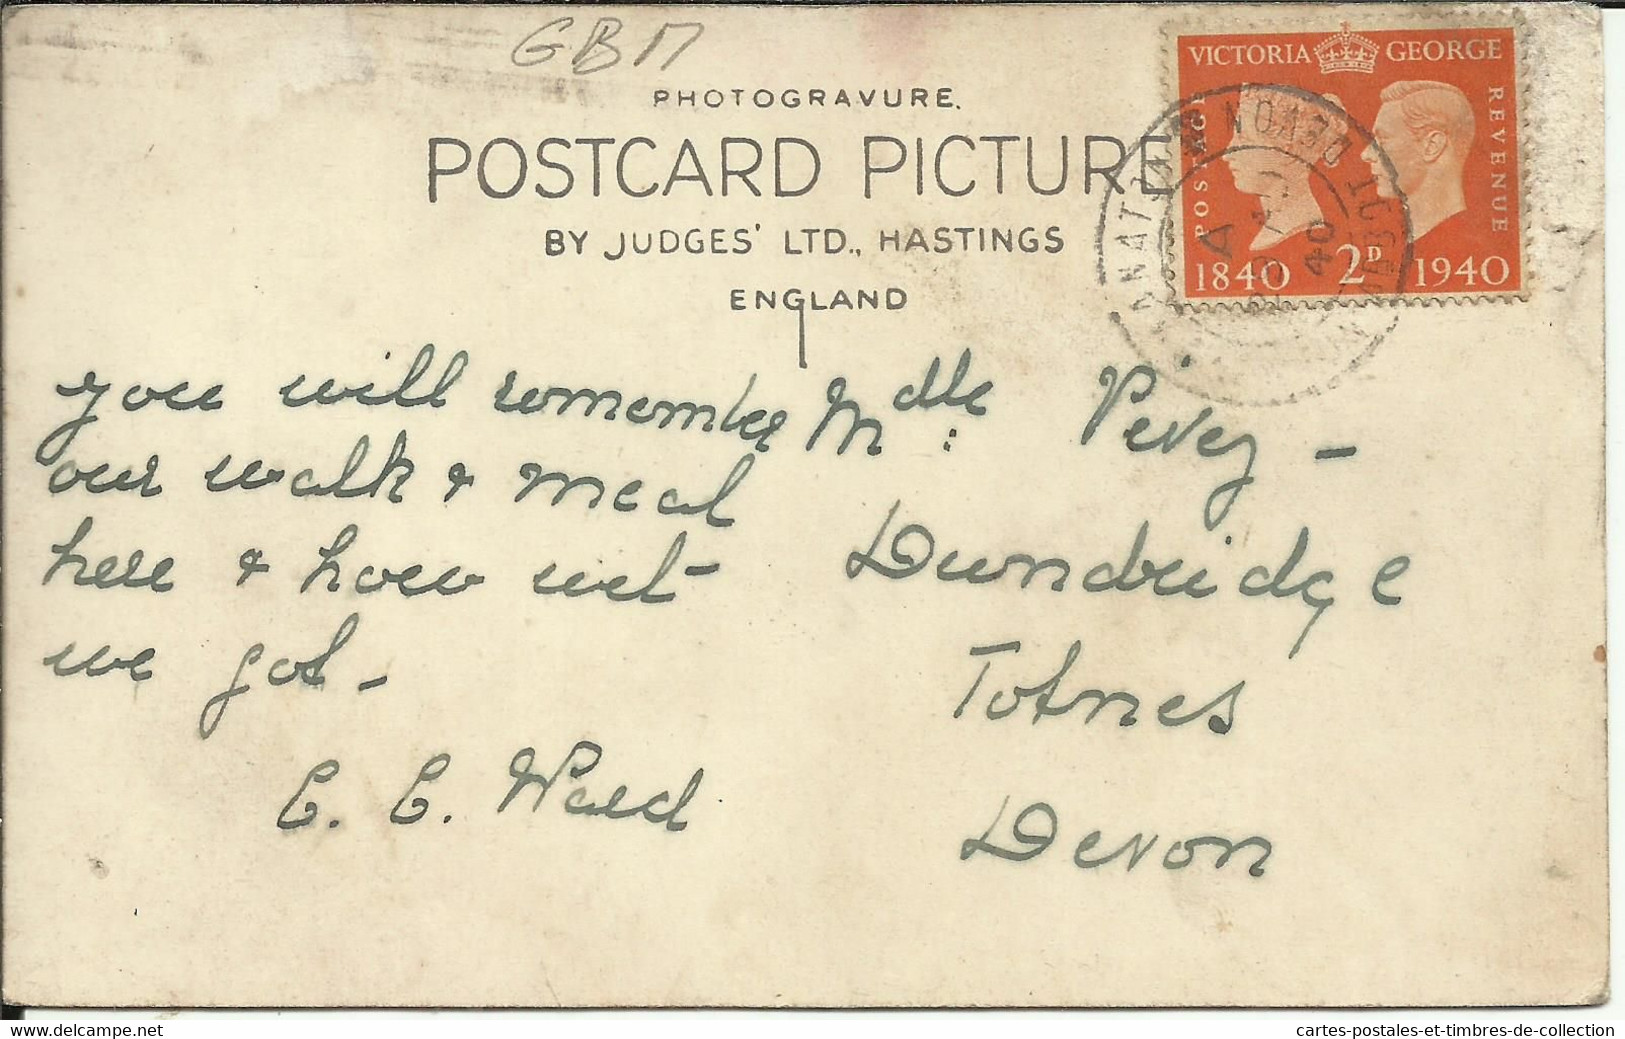 GBM
PHOTOGRAVURE.
POSTCARD PICTURE
BY JUDGES' LTD., HASTINGS
ENGLAND
VICTORIA GEORGE
POSTAGE
REVENUE
1840 2D 1940
DEVON
A
40
you will remember
our walk & meal
here & how wet
we got -
C. C. Ward
Mdlle Pivey -
Dundridge
Totnes
Devon
cartes-postales-et-timbres-de-collection